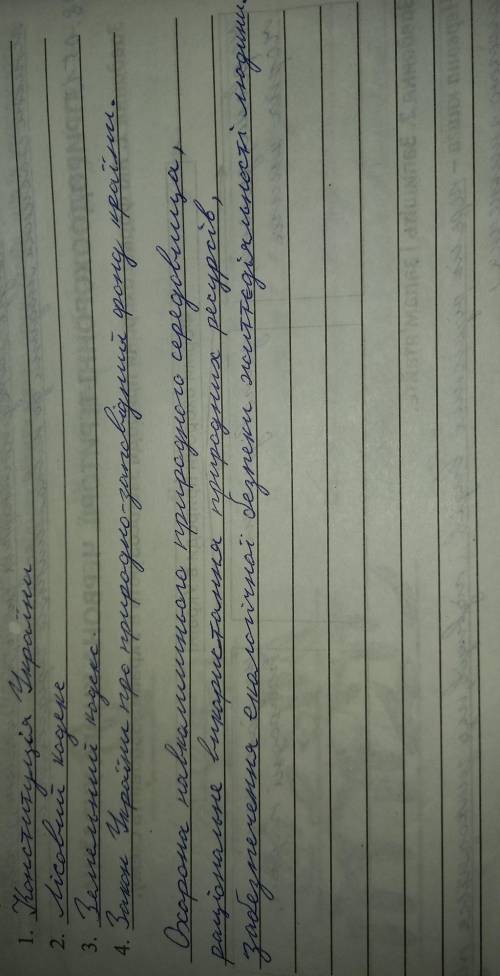 1. Конституція України
2. Лісовий кодекс
3. Земельний кодекс
4. Закон України про природно-заповідний фонд країни.
Охорона навколишнього природного середовища,
раціональне використання природних ресурсів,
забезпечення екологічної безпеки життєдіяльності людини.